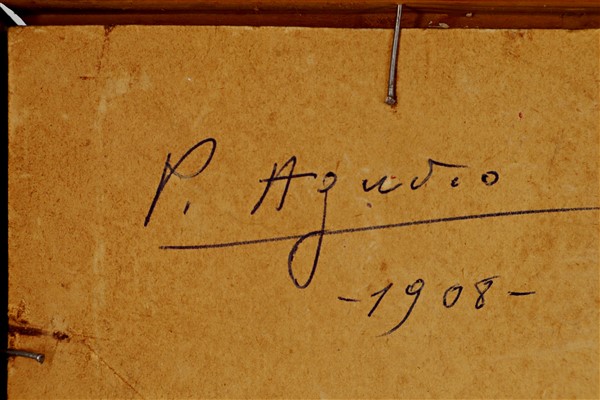 P. Agudio
-1908-